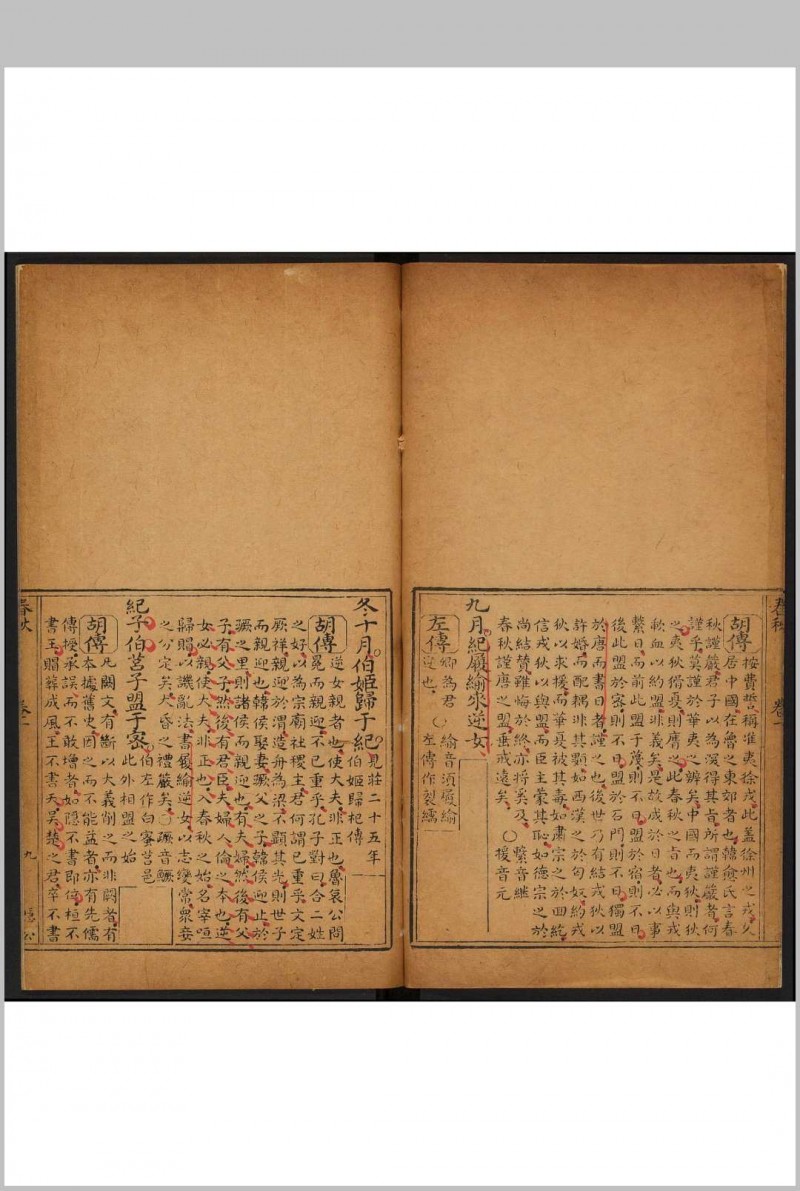 春秋 卷一
胡傳 按費誓稱淮夷徐戎此蓋徐州之戎久
居中國在魯之東郊者也韓愈氏言春
秋謹嚴君子以為深得其旨所謂謹嚴者何
謹乎莫謹於華夷之辨矣中國而夷狄則狄
之夷狄猾夏則膺之此春秋之旨也而與戎
歃血以約盟非義矣是故盛於日者必以事
繫日而前此盟于蔑則不日盟於宿則不日
後此盟於密則不日盟於石門則不日獨盟
於唐而書日者謹之也後世乃有結戎狄以
許婚而配耦非其類如西漢之於匈奴約戎
狄以求援而華夏被其毒如肅宗之於回紇
信戎狄以與盟而臣主蒙其恥如德宗之於
尚結贊雖悔於終亦將奚及 〇 繫音繼
春秋謹唐之盟垂戒遠矣 〇 援音元
九月紀履緰來逆女
左傳 卿為君 〇 緰音須履緰
逆也 左傳作裂繻
冬十月伯姬歸于紀 見莊二十五年
伯姬歸杞傳
胡傳 逆女親者也使大夫非正也魯哀公問
冕而親迎不已重乎孔子對曰合二姓
之好以為宗廟社稷主君何謂已重乎文定
厥祥親迎於渭造舟為梁不顯其光則世子
而親迎也韓侯娶妻蹶父之子韓侯迎止於
蹶之里則諸侯而親迎也有夫婦然後有父
子有父子然後有君臣夫婦人倫之本也逆
女必親使大夫非正也入春秋之始名宰咺
歸賵以譏亂法書履緰逆女以志變常眾妾
之分定矣大昏之禮嚴矣 〇 蹶音鱖
紀子伯莒子盟于密 伯左作帛密莒邑
此外相盟之始
胡傳 凡闕文有斷以大義削之而非闕者有
本據舊史因之而不能益者亦有先儒
傳授承誤而不敢增者如隱不書即位桓不
書王賵葬成風王不書天吳楚之君卒不書
春秋 卷一 九 隱公